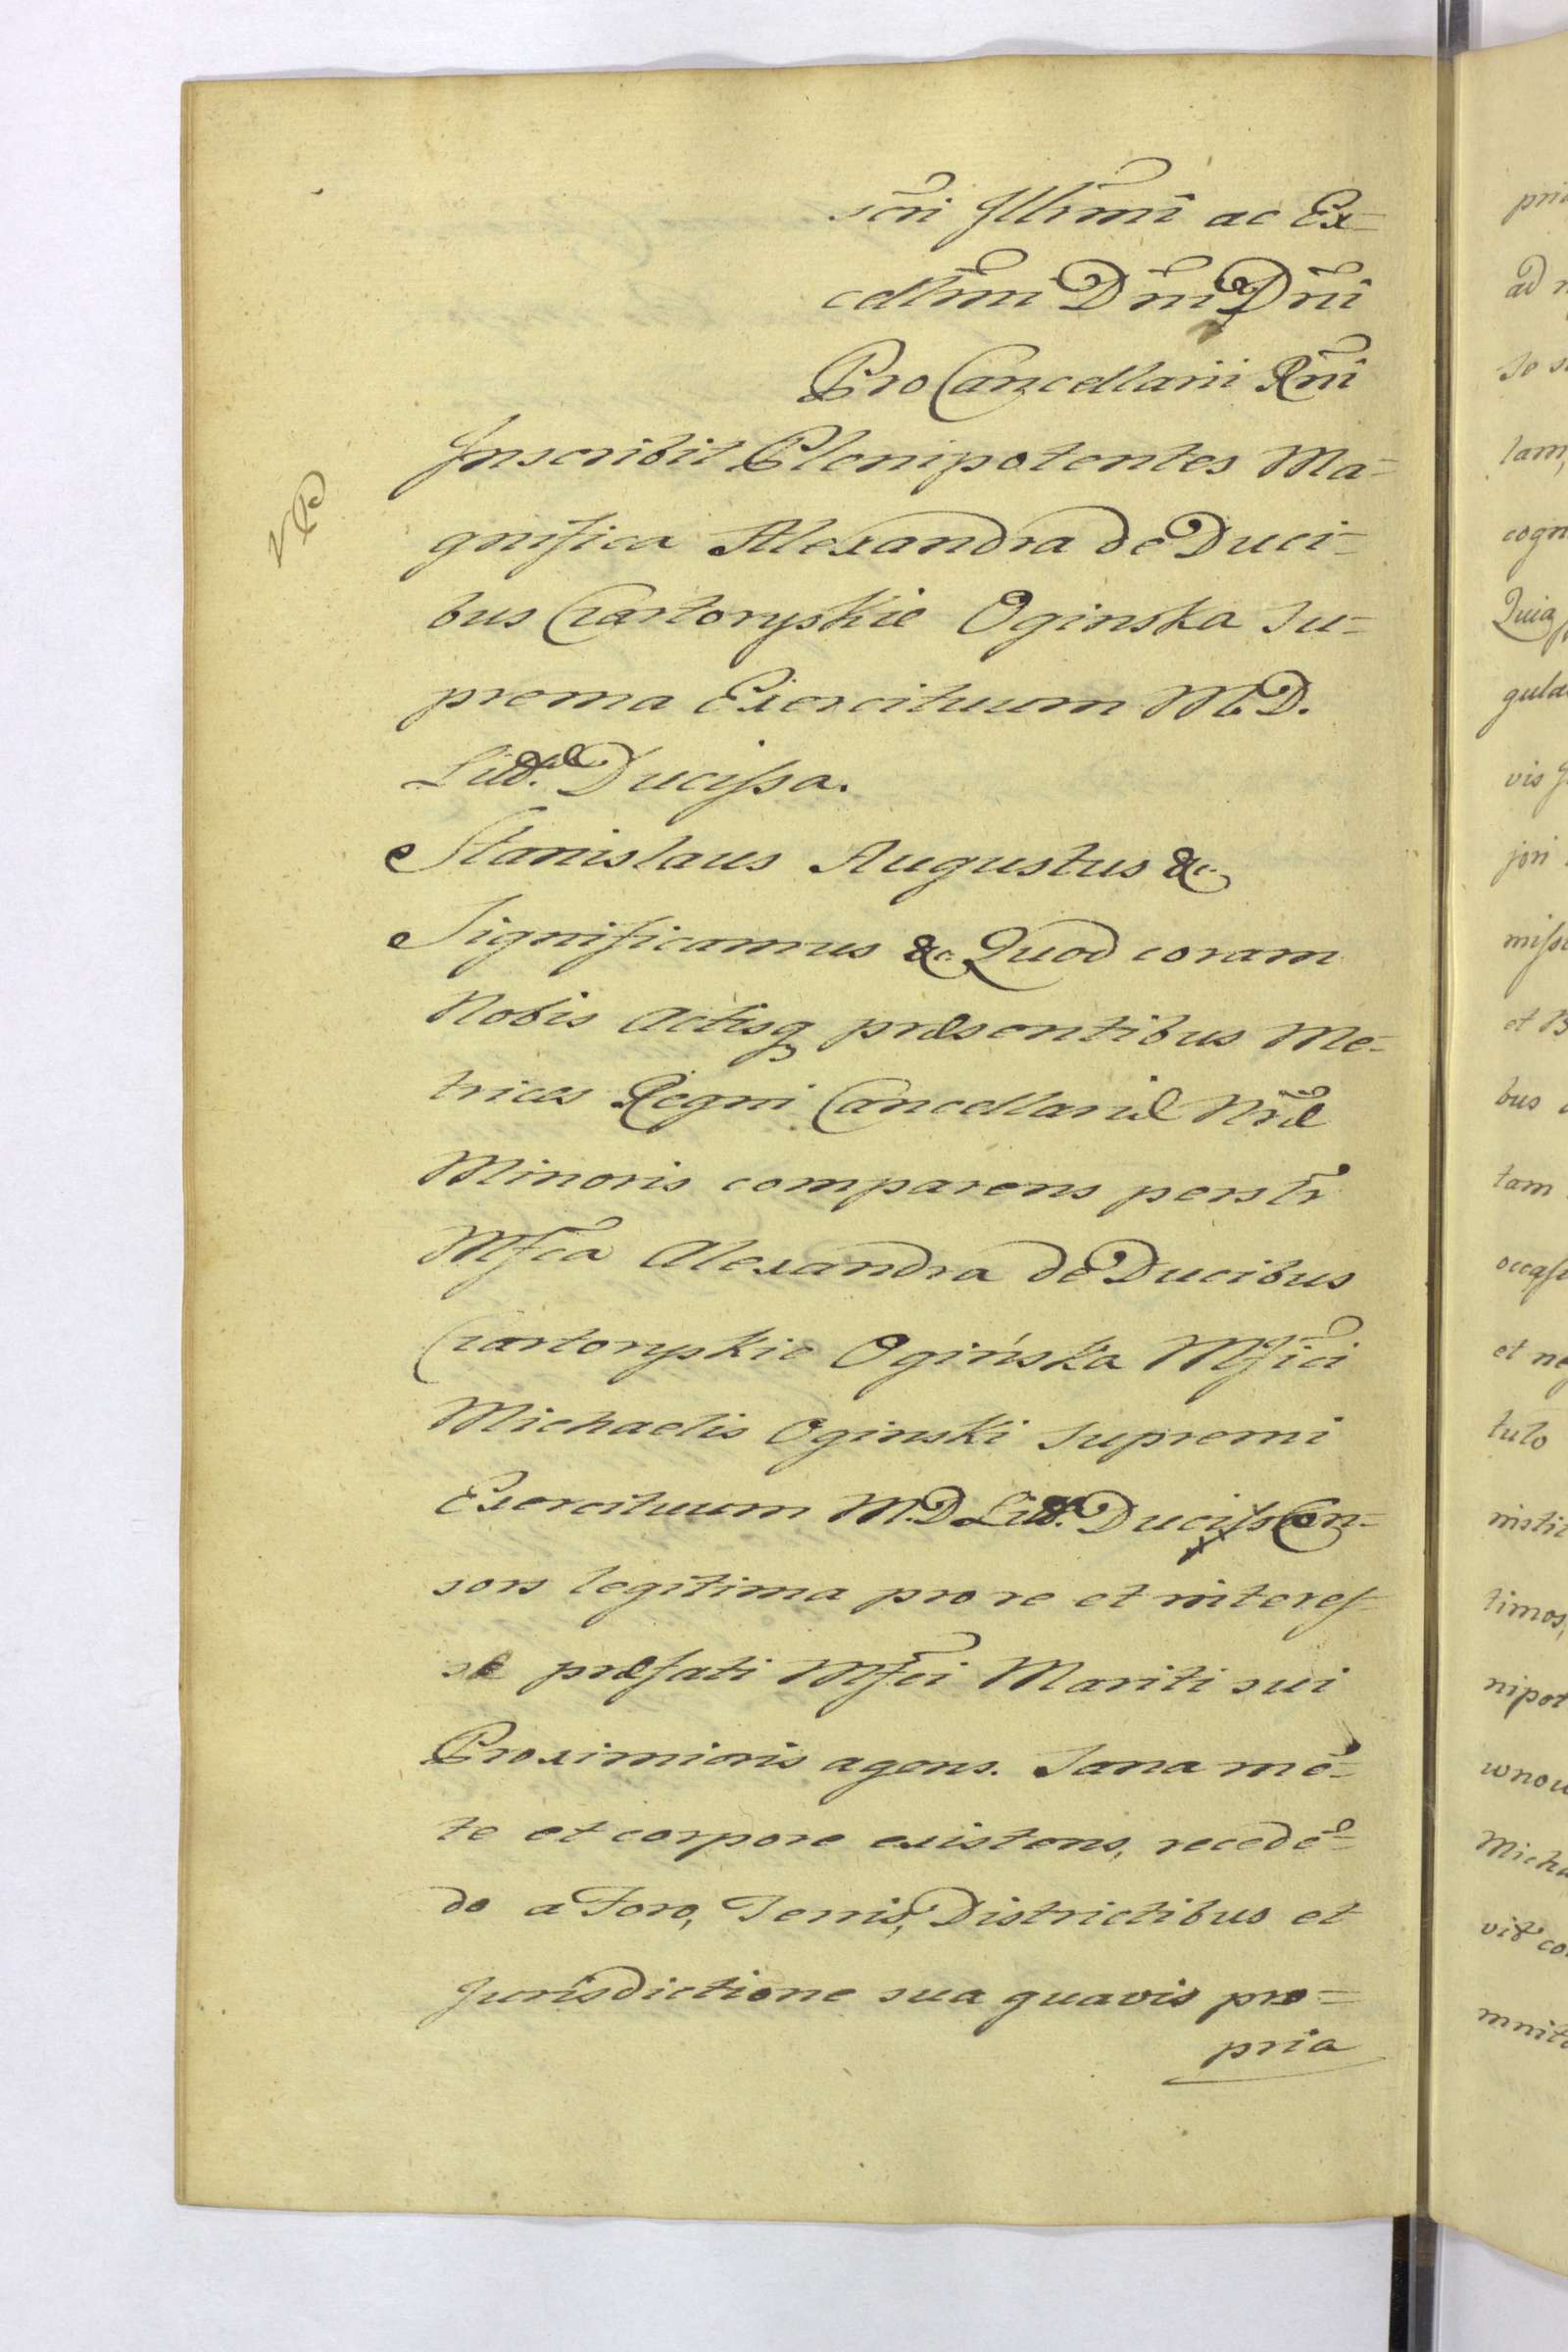 scri Illrmi ac Ex-
cellmi Dni Dni
ProCancellarii Rni
Inscribit Plenipotentes Ma-
gnifica Alexandra de Duci-
bus Czartoryskie Oginska Su-
prema Exercituum M.D.
Litt. Ducissa.
Stanislaus Augustus &c
Significamus &c. Quod coram
Nobis Actisq præsentibus Me-
trices Regni Cancellariæ Nræ
Minoris comparens persłr
Mfca Alexandra de Ducibus
Czartoryskie Ogińska Mfici
Michaelis Oginski Supremi
Exercituum M.D. Litt. Ducis Con-
sors legitima pro re et interes-
se præfati Mfci Mariti sui
Proximioris agens. Sana mē-
te et corpore existens, recedē-
do a Foro, Terris, Districtibus et
Jurisdictione sua quavis pro-
pria
pri
ad
se
tam,
cogn
Quia
gula
vis
jori
miss
et B
bus
tam
occas
et ne
tulo
instit
timos,
nipot
wnow
Micha
vit co
mnit